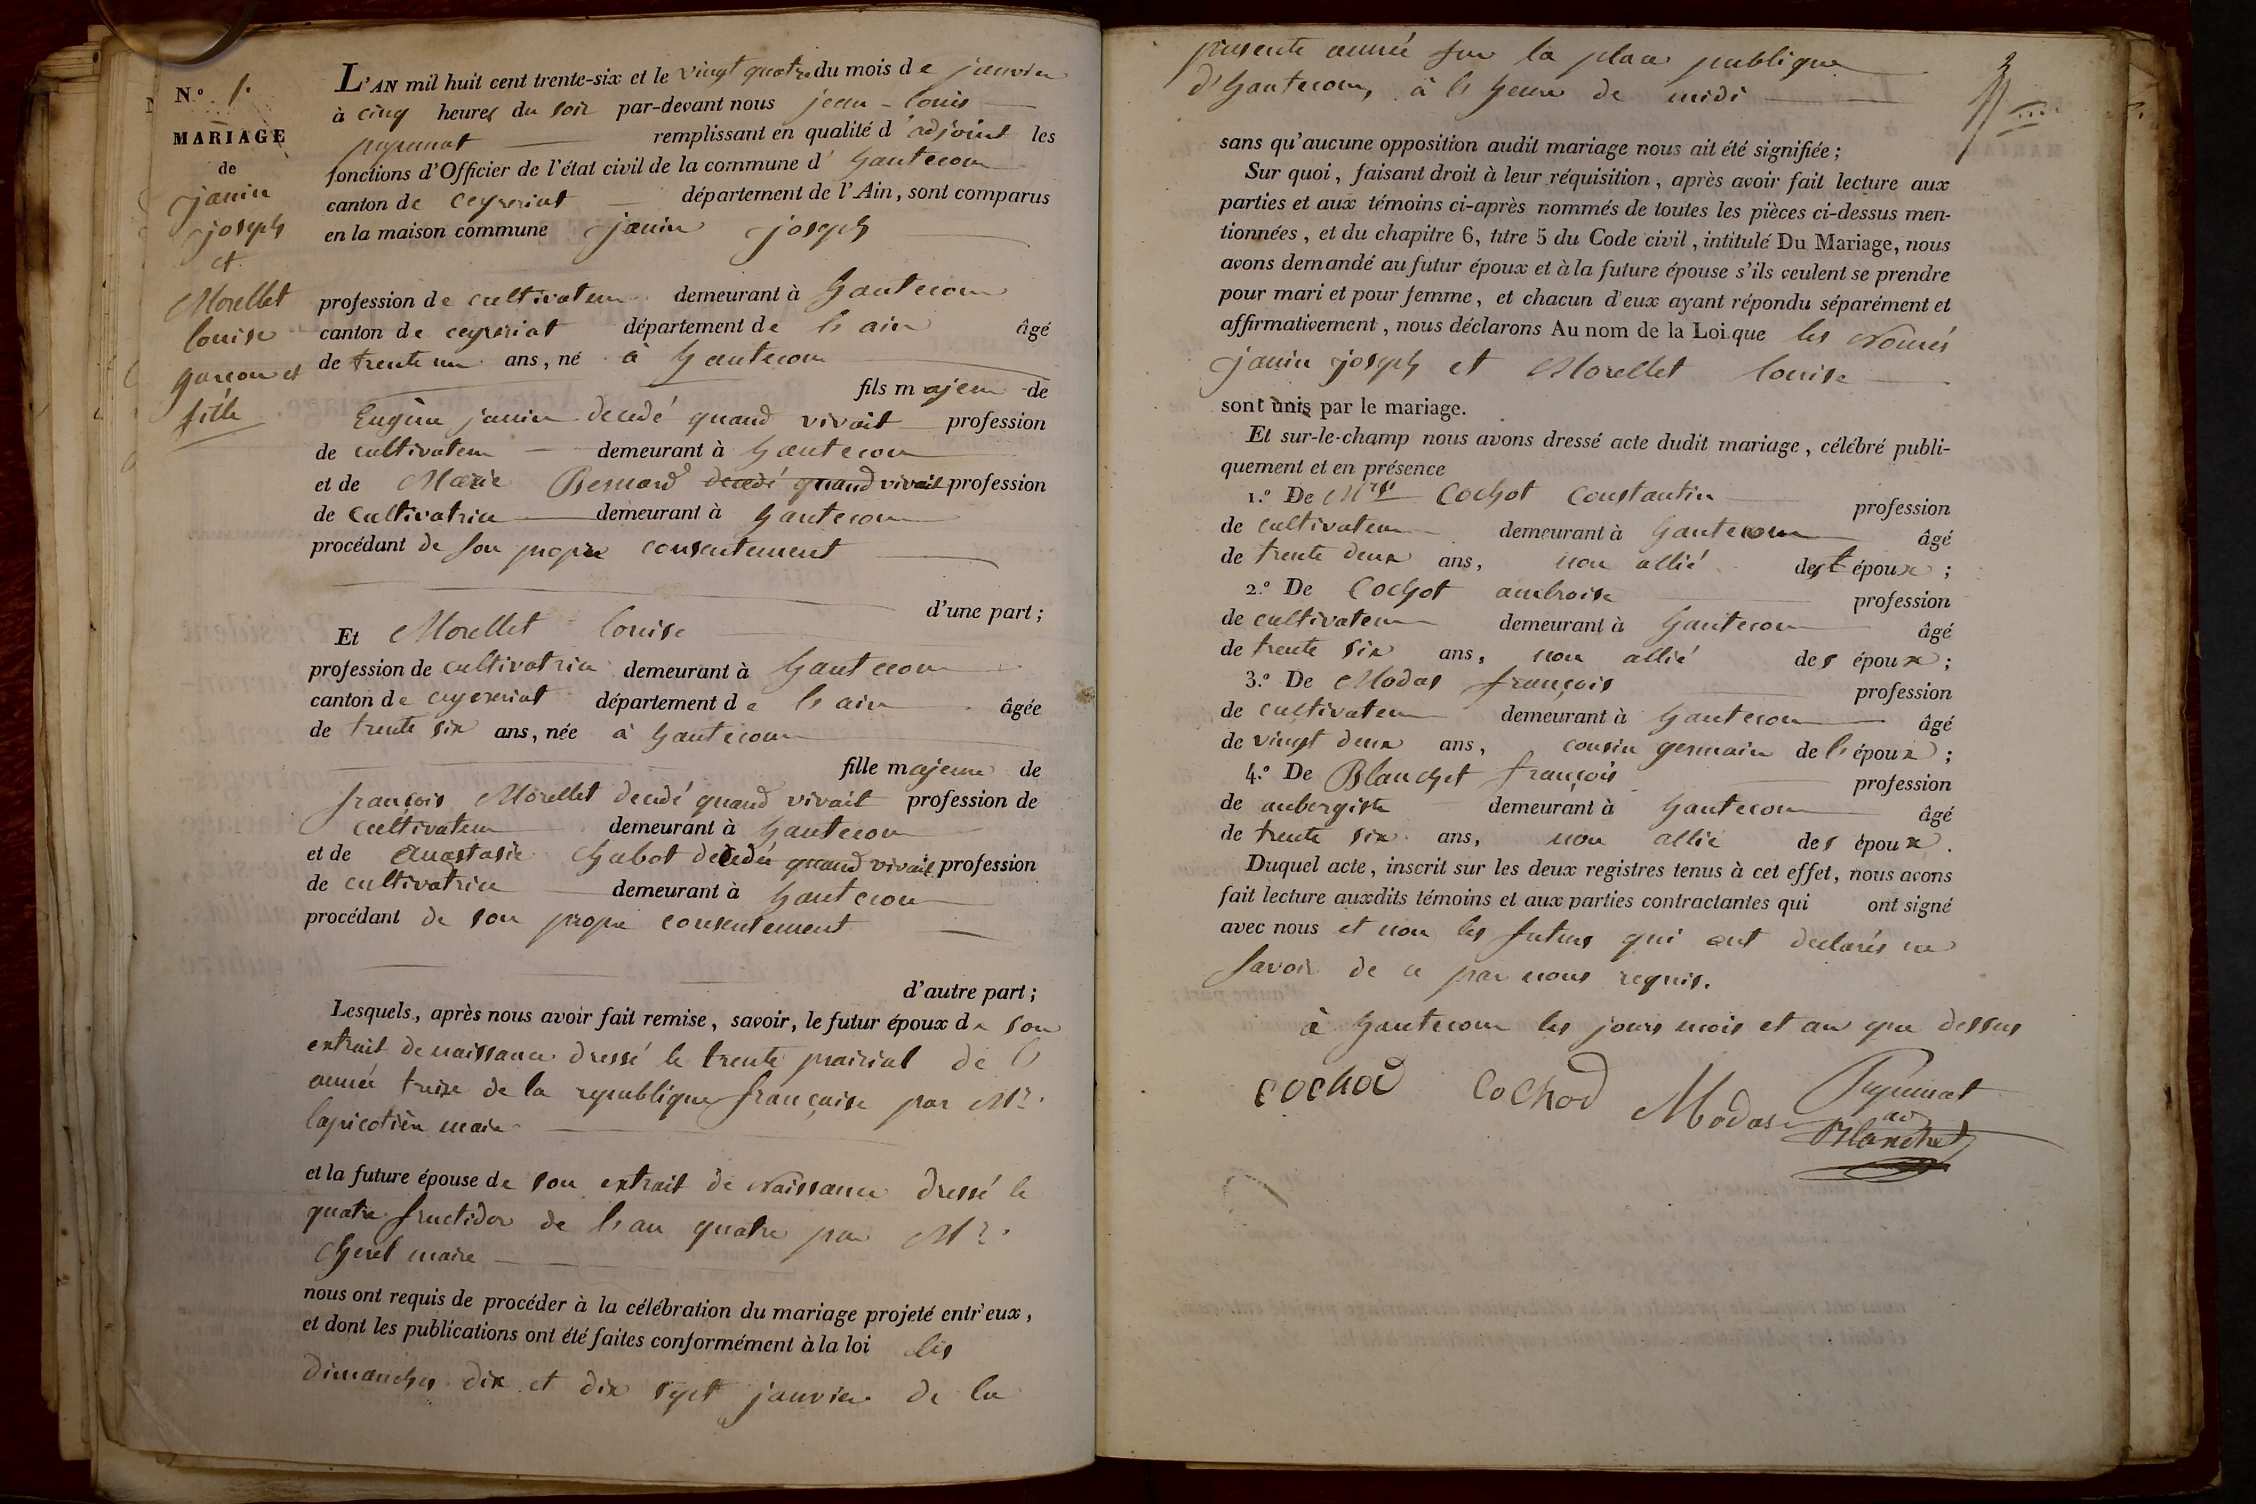 N.º 1.
MARIAGE
de
janin
joseph
et
Morellet
louise
garcon et
fille
L'AN mil huit cent trente-six et le vingt quatre du mois de janvier
à cinq heures du soir par-devant nous jean-louis
remplissant en qualité d'adjoint les
fonctions d'Officier de l'état civil de la commune d'hautecour
canton de ceyzeriat département de l'Ain, sont comparus
en la maison commune janin joseph
profession de cultivateur demeurant à hautecour
canton de ceyzeriat département de l'ain âgé
de trente un ans, né à hautecour
fils majeur de
Eugène janin decedé quand vivait profession
de cultivateur demeurant à hautecour
et de Marie Bernard decedé quand vivait profession
de cultivatrice demeurant à hautecour
procédant de son propre consentement
d'une part;
Et Morellet louise
profession de cultivatrice demeurant à hautecour
canton de ceyzeriat département de l'ain âgée
de trente six ans, née à hautecour
fille majeure de
françois Morellet decedé quand vivait profession de
cultivateur demeurant à hautecour
et de anastasie chabot decedée quand vivait profession
de cultivatrice demeurant à hautecour
procédant de son propre consentement
d'autre part;
Lesquels, après nous avoir fait remise, savoir, le futur époux de son
extrait de naissance dressé le trente prairial de l'
année treize de la republique française par Mr.
lapicotière maire
et la future épouse de son extrait de naissance dressé le
quatre fructidor de l'an quatre par Mr.
maire
nous ont requis de procéder à la célébration du mariage projeté entr'eux,
et dont les publications ont été faites conformément à la loi les
dimanches dix et dix sept janvier de la
presente année sur la place publique
d'hautecour, à l'heure de midi
sans qu'aucune opposition audit mariage nous ait été signifiée;
Sur quoi, faisant droit à leur réquisition, après avoir fait lecture aux
parties et aux témoins ci-après nommés de toutes les pièces ci-dessus men-
tionnées, et du chapitre 6, titre 5 du Code civil, intitulé Du Mariage, nous
avons demandé au futur époux et à la future épouse s'ils veulent se prendre
pour mari et pour femme, et chacun d'eux ayant répondu séparément et
affirmativement, nous déclarons Au nom de la Loi que les només
janin joseph et Morellet louise
sont unis par le mariage.
Et sur-le-champ nous avons dressé acte dudit mariage, célébré publi-
quement et en présence
1.º De Mrs cochot constantin profession
de cultivateur demeurant à hautecour âgé
de trente deux ans, non allié des époux;
2.º De cochot ambroise profession
de cultivateur demeurant à hautecour âgé
de trente six ans, non allié des époux;
3.º De Modas françois profession
de cultivateur demeurant à hautecour âgé
de vingt deux ans, cousin germain de l'époux;
4.º De Blanchet françois profession
de aubergiste demeurant à hautecour âgé
de trente six ans, non allié des époux.
Duquel acte, inscrit sur les deux registres tenus à cet effet, nous avons
fait lecture auxdits témoins et aux parties contractantes qui ont signé
avec nous et non les futurs qui ont declarés ne
savoir de ce par nous requis.
à hautecour les jours mois et an que dessus
cochod cochod Modas
ad
Blanchet